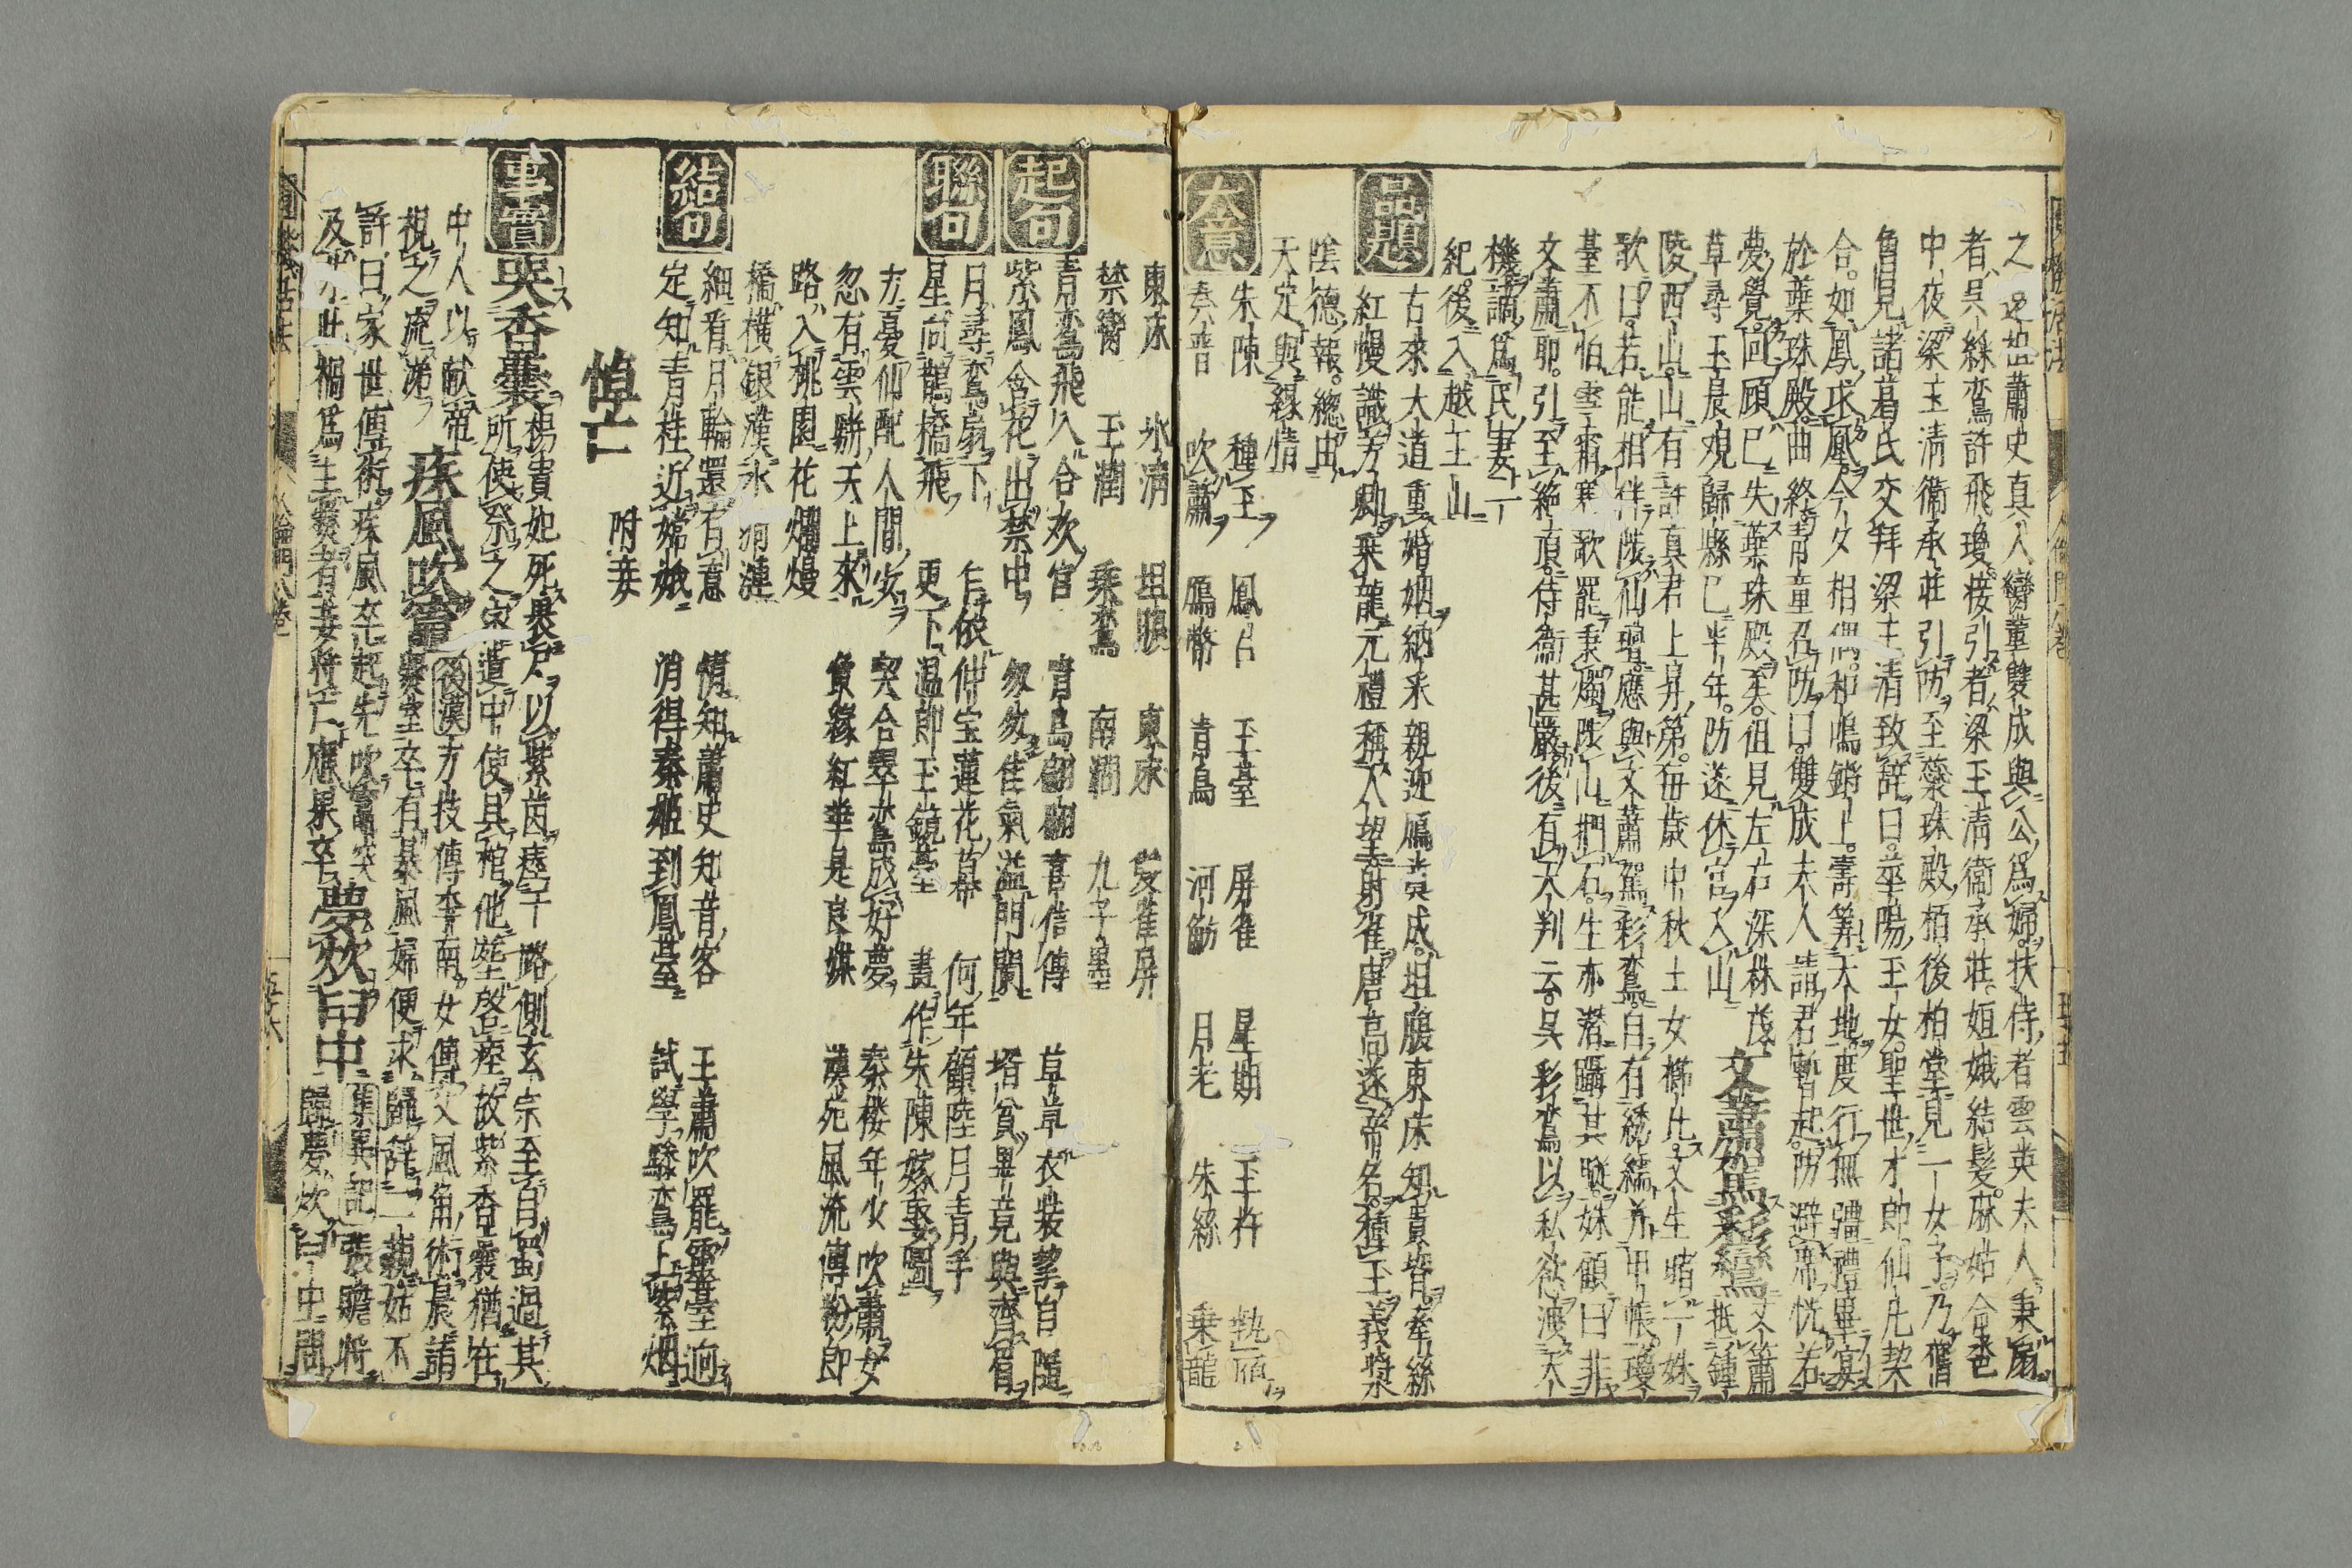 之邊也蕭史真人彎董雙成與公爲婦扶侍者雲英夫人秉扇
者吳綵鸞許飛瓊接引者梁玉清衛承莊姮娥結髮麻姑合卺
中夜梁玉清衛承莊引防至蘂珠殿栢後柏堂見一女子乃舊
魯見諸葛氏交拜梁玉清致辭曰莘陽玉女聖世才郎仙凡契
合如鳳求凰今夕相偶和鳴鏘上壽筭天地度行無疆禮畢宴
於蘂珠殿曲終青童召防曰雙成夫人請君暫起防避席恍若
夢覺回顧已失蘂珠殿矣徂見左右深林茂
草尋玉晨觀歸縣已半年防遂休官入山
文蕭駕彩鸞
文簫
抵鍾
陵西山山有許真君上昇第每歲中秋士女櫛比文生睹一姝
歌曰若能相伴陟仙壇應與文蕭駕彩鸞自有綉襦并甲帳瓊
臺不怕雪霜寒歌罷秉燭陟山捫石生亦潛躡其蹤姝顧曰非
文蕭耶引至絶頂侍衛甚嚴後有天判云吳彩鸞以私慾洩天
機謫爲民妻一
紀後入越王山
品題
古來大道重婚姻納采親迎鴈奠成坦腹東床知貴壻牽絲
紅幔識芳卿乗龍元禮稱人望射雀唐高遂帝名種玉義漿
陰德報總由
天定與緣情
大意
朱陳 種玉 鳳台 玉臺 屏雀 星期 玉杵 執鴈
秦晉 吹簫 鴈幣 青鳥 河魴 月老 朱絲 乗龍
東床 氷清 坦腹 東床 雀屏
禁臠 玉潤 乗鸞 南澗 九子墨
起句
青鸞飛入合欢宮 青鳥翩翩喜信傳 草草衣裝挈自隨
紫鳳含花出禁中 匆匆佳氣溢門闌 壻貧畢竟與齊眉
聯句
月尋鸞扇下 乍依仲宝蓮花幕 何年顧陸丹青手
星向鵲橋飛 更下温郎玉鏡臺 畫作朱陳嫁娶圖
方憂仙配人間少 契合翠鸞成好夢 秦楼年少吹蕭女
忽有雲軿天上來 夤緣紅葉是良媒 漢苑風流傅粉郎
路入桃園花爛熳
橋横銀漢水洄漣
結句
細看月輪還有意 情知蕭史知音客 王蕭吹罷露臺迥
定知青桂近嫦娥 消得秦姬到鳳臺 試學驂鸞上紫烟
悼亡 附妾
事實
哭香囊
楊貴妃死裹尸以紫茵瘞于路側玄宗至自蜀過其
所使祭之密遣中使具棺他塋啓瘞故紫香囊猶在
中人以献帝
視之流涕
疾風吹竈
後漢方技傳李南女傳父風角術晨請
爨室卒有暴風婦便求歸辞一親姑不
許曰家世傳術疾風卒起先吹竈突
及井此禍爲主爨者有妻將亡應果卒
夢炊臼中
集異記張瞻將
歸夢炊臼中問